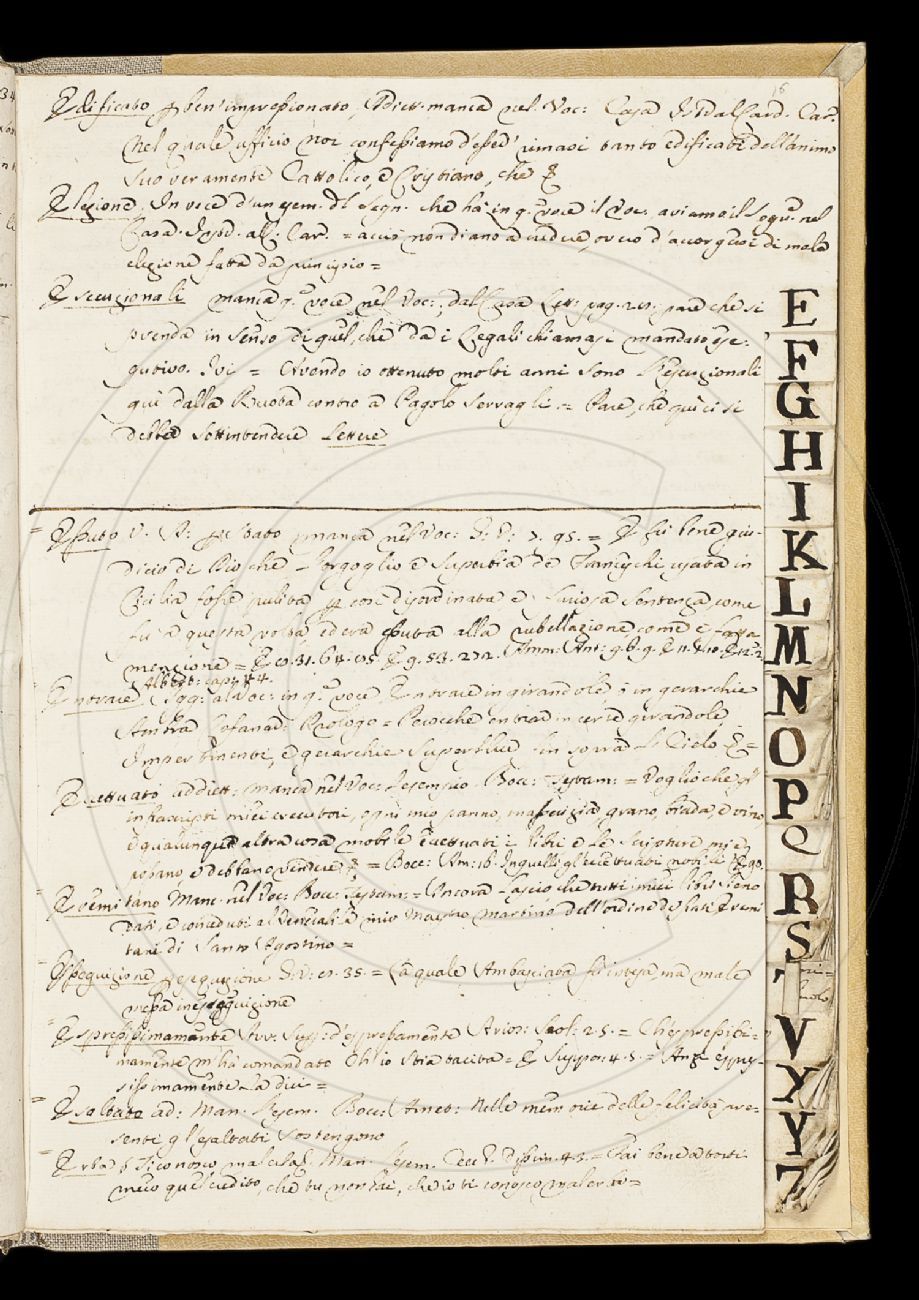 16
Edificato p ben' impressionato, Addiett. manca nel Voc: Casa Card. Car.
Nel quale ufficio noi confessiamo d'esser' rimasi tanto edificati dell'animo
suo veramente Cattolico, e Cristiano, che &
Elezione. In vece d'un esem. del Segn. che ha in q.ª voce il Voc. aviamo il segu.e nel
Casa. Car. = acciò non diano a credere, ovvero d'accorgersi di mala
elezione fatta da principio =
Esecuzionali manca q.ª voce nel Voc:, dal Casa Lett: pag. pare che si
prenda in senso di quel, che da i Legali chiamasi mandato ese-
cutivo. Ivi = Avendo io ottenuto molti anni sono l'esecuzionali
qui dalla Ruota contro a Pagolo Serragli = Pare, che quici si
debba sottintendere Lettere
Essuto V. A: p stato manca nel Voc: G: V: 7. 95. = E fu bene giu-
dicio di Dio che l'orgoglio e superbia de Franceschi usata in
Cicilia fosse pulita p così disordinata e furiosa sentenza, come
fu a questa volta ed era essuta alla rubellazione, come è fatta
menzione =
Albert: cap.
Ennovare Agg: al Voc: in q.ª voce, Ennovare in girandole, in gerarchie
Ambra Cofanar: Prologo = Perocche entrare in certe girandole
Impertinenti, e gerarchie superbie fin sopra il Cielo &=
Eccettuato addiett: manca nel Voc: l'esempio. Bocc: Testam: = Voglio che gl'
infrascripti miei executori, ogni mio panno, masserizia, grano, biada, e vino
e qualunque altra cosa mobile eccettuati i libri e le scripture mie
possano e debbano vendere & = Bocc: Am: 16. In quelli gl'eccettuati nobili & 90.
Eremitano Manc. nel Voc: Bocc: Testam: = Ancora lascio che tutti i miei libri sieno
dati, e conceduti al Venerabile mio Maestro Martino dell'ordine de frati Eremi
tani di Santo Agostino =
Esseguizione p esequzione G: V: 35. = La quale Ambasciata fu intesa, ma male
messa in esseguizione
Espressissimamente Avv. Sup: d'espressamente Arios: Scol: 2.5. = Ch'espressissi-
mamente m'ha comandato Ch'io stia tacita = E Suppos. 4.5. = Anzi espres-
sissimamente La dici =
Esaltato ad: Man. l'esem. Bocc: Amet: Nelle memorie delle felicità pre-
senti gl'esaltati sostengono
Erba ti conosco mal'erba. Man. l'esem. Cecc. Dissim. 4.3. = Fai bene a torti
meco quel credito, che tu non hai, che io ti conosco mal erba =
E
F
G
H
I
K
L
M
N
O
P
Q
R
S
T
V
Y
Y
Z